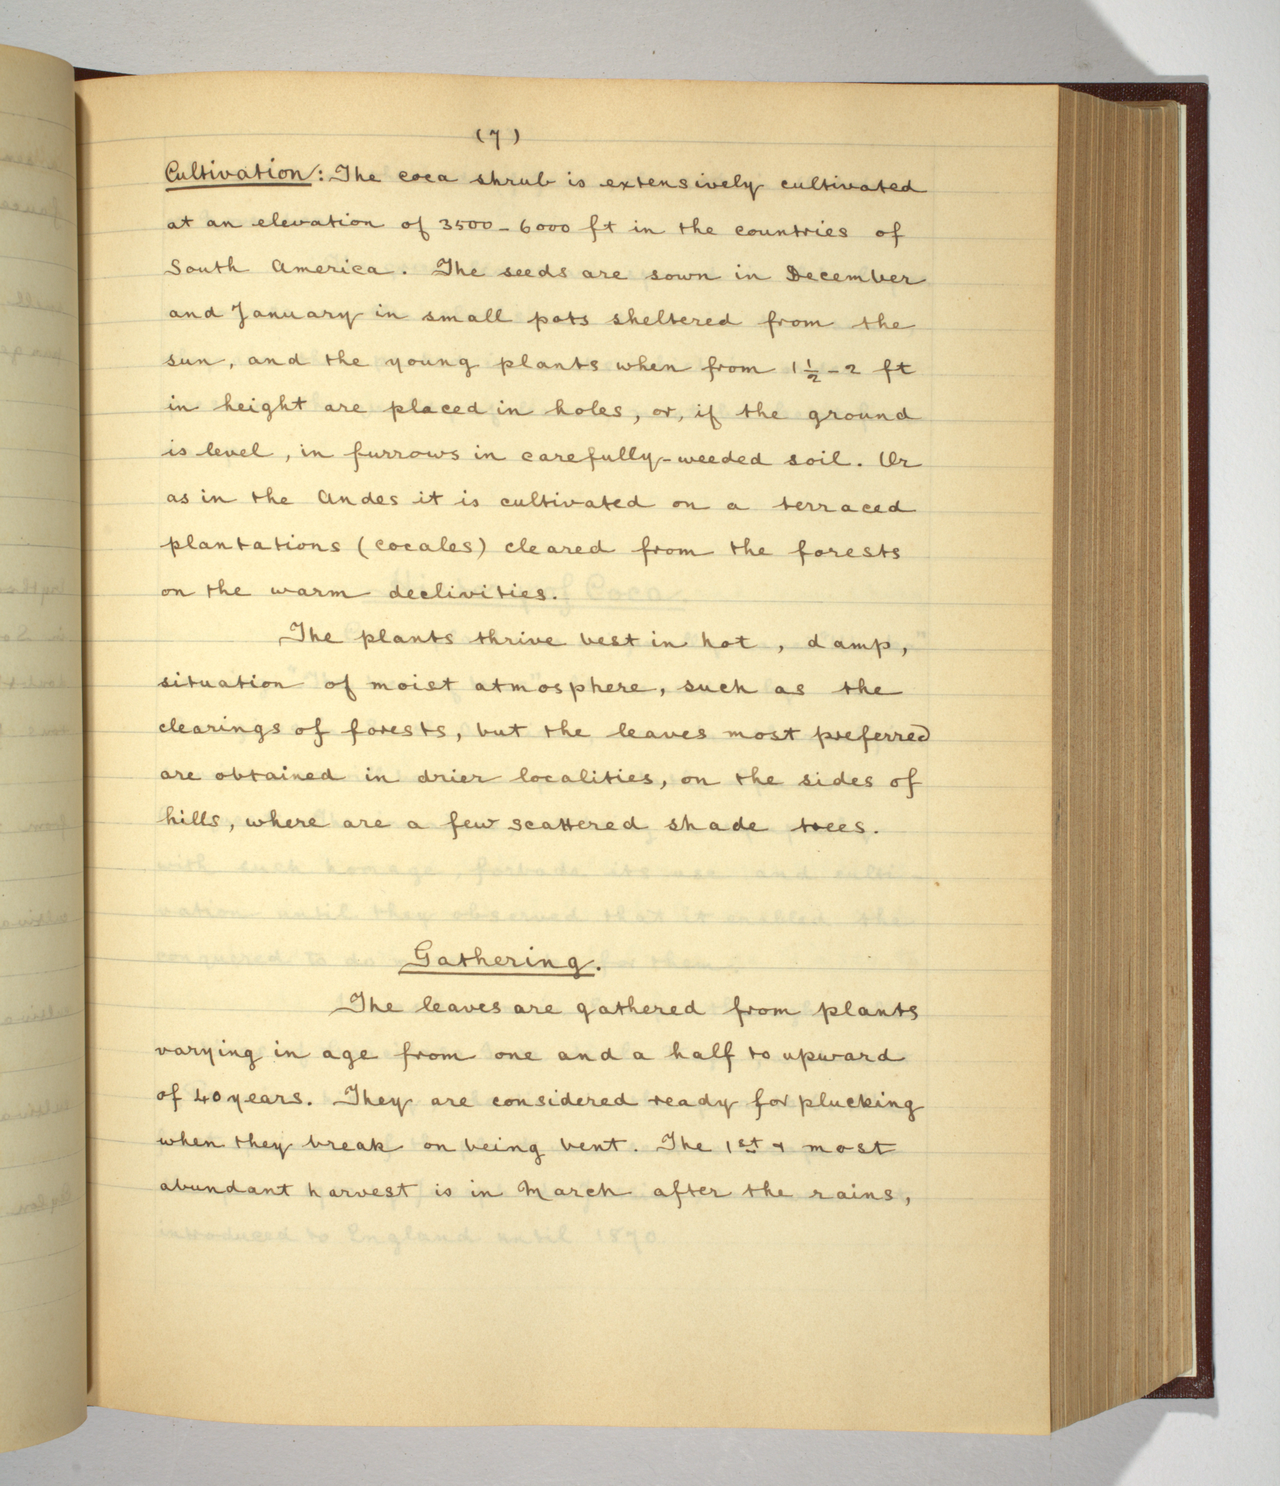 (7)
Cultivation: The coca shrub is extensively cultivated
at an elevation of 3500-6000 ft in the countries of
South America. The seeds are sown in December
and January in small pots sheltered from the
sun, and the young plants when from 1½-2 ft
in height are placed in holes, or, if the ground
is level, in furrows in carefully-weeded soil. Or
as in the Andes it is cultivated on a terraced
plantations (cocales) cleared from the forests
on the warm declivities.
The plants thrive best in hot, damp,
situation of moist atmosphere, such as the
clearings of forests, but the leaves most preferred
are obtained in drier localities, on the sides of
hills, where are a few scattered shade trees.
with such homage, forbade its use and culti-
vation until they observed that it enabled the
conquered to do
Gathering.
The leaves are gathered from plants
varying in age from one and a half to upward
of 40 years. They are considered ready for plucking
when they break on being bent. The 1st & most
abundant harvest is in March after the rains,
introduced to England until 1870